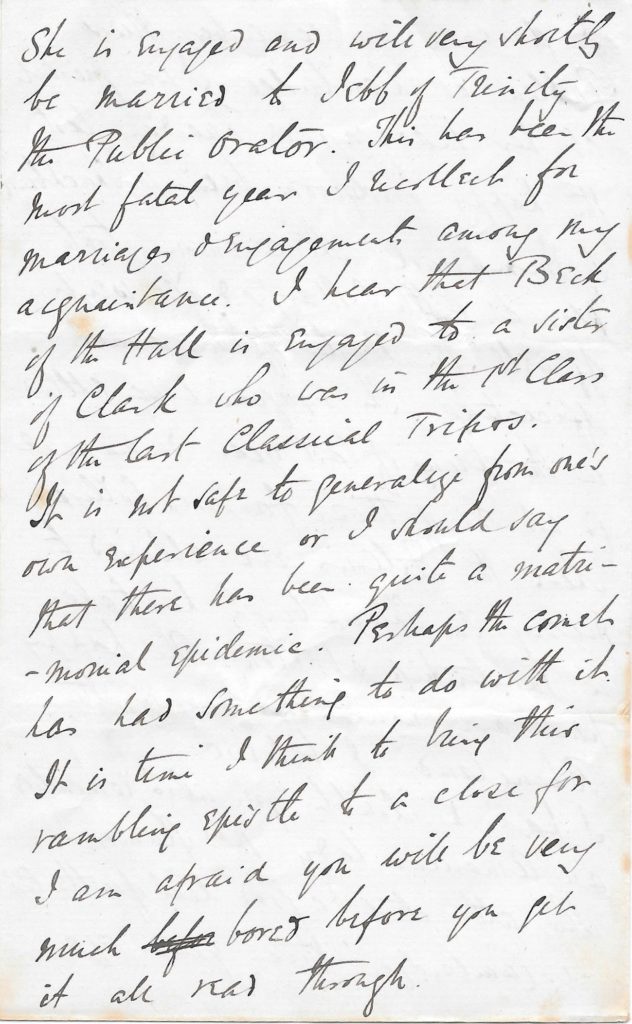 She is engaged and will very shortly
be married to Jebb of Trinity
the Public Orator. This has been the
most fatal year I recollect for
marriages & engagements among my
acquaintance. I hear that Beck
of the Hall is engaged to a sister
of Clark who was in the 1st Class
of the last Classical Tripos.
It is not safe to generalize from one's
own experience or I should say
that there has been quite a matri-
-monial epidemic. Perhaps the comet
has had something to do with it.
It is time I think to bring this
rambling epistle to a close for
I am afraid you will be very
much befor bored before you get
it all read through.